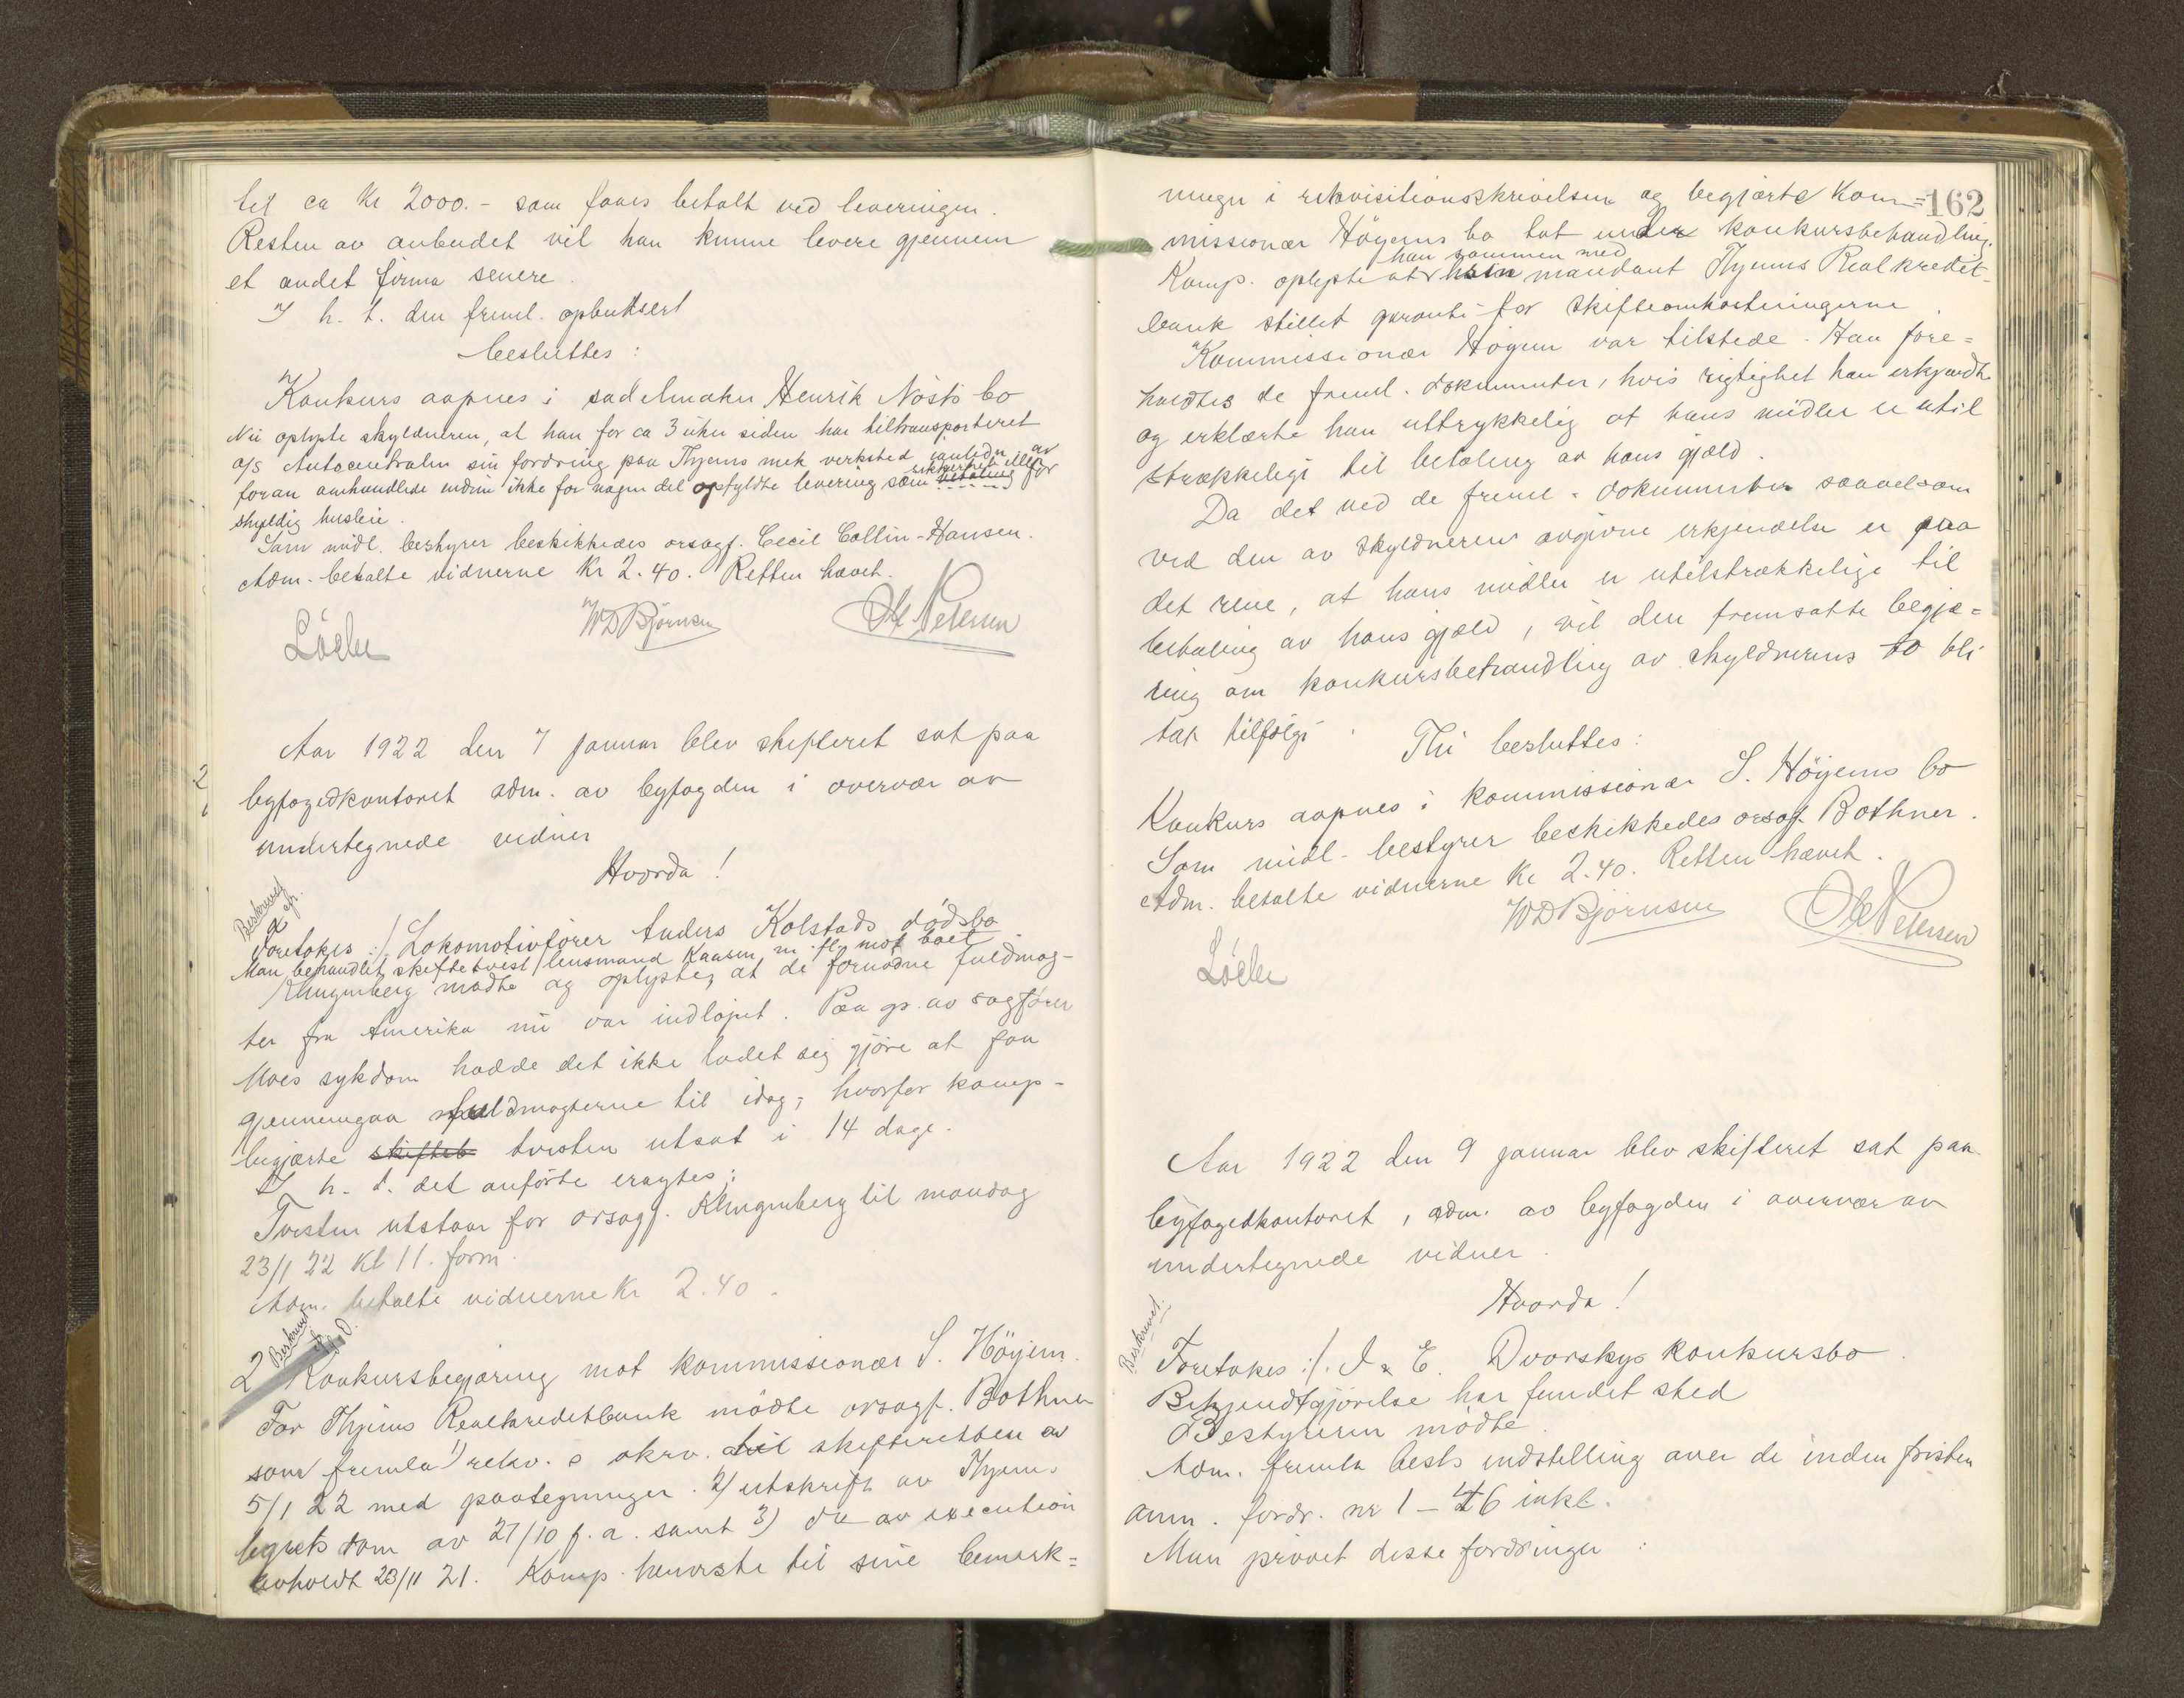 til ca Kr 2000.- som faaes betalt ved leveringen.
Resten av anbudet vil han kunne levere gjennem
et andet firma senere.
I h. t. den freml.
besluttes:
Konkurs aapnes i sadelmaker Henrik Nöstö bo
Nu oplyste skyldneren, at han for ca 3 uker siden har tiltransporteret
a/s Autocentralen sin fordring paa Thjems mek verksted i anledn av
foran omhandlede endnu ikke for nogen del opfyldte levering som betaling sikkerhet eller for
skyldig husleie.
Som midl. bestyrer beskikkedes orsagf. Cecil Collin-Hansen.
Adm. betalte vidnerne Kr 2.40. Retten hævet.
WD Björnsen
Ole Petersen
Aar 1922 den 7 januar blev skifteret sat paa
byfogedkontoret adm. av byfogden i overvær av
undertegnede vidner
Hvorda!
Beskrevet
Foretokes :/. Lokomotivförer Anders Kolstads dödsbo
Man behandlet skiftetvist lensmand Kaasen m. fl. mot boet
Klingenberg mödte og oplyste, at de fornödne fuldmag-
ter fra Amerika nu var indlöpet. Paa gr. av sagförer
Moes sykdom hadde det ikke ladet sig gjöre at faa
gjennemgaa fuldmagterne til idag, hvorfor komp-
begjærte skiftet tvisten utsat i 14 dage.
I h. t. det anförte eragtes:
Tvisten utstaar for orsagf. Klingenberg til mandag
23/1 22 kl 11. form.
Adm. betalte vidnerne Kr 2.40.
Beskrevet
2 Konkursbegjæring mot kommissionær S. Höyem.
For Thjems Realkreditbank mödte orsagf. Bothner
som fremla 1) rekv. s skrv. til skifteretten av
5/1 22 med paategninger. 2) utskrift av Thjems
byrets dom av 27/10 f. a. samt 3) do av execution
avholdt 23/11 21. Komp. henviste til sine bemærk=
162
ninger i rekvisitionsskrivelsen og begjærte Kom=
missionær Höyems bo tat under konkursbehandling.
han sammen med
Komp. oplyste at hans mandant Thjems Realkredit-
bank stillet garanti for skifteomkostningerne
Kommissionær Höyem var tilstede. Han fore=
holdtes de freml. dokumenter, hvis rigtighet han erkjendte
og erklærte han uttrykkelig at hans midler er util
strækkelige til betaling av hans gjæld.
Da det ved de freml. dokumenter saavelsom
ved den av skyldneren avgivne erkjendelse er paa
det rene, at hans midler er utilstrækkelige til
betaling av hans gjæld, vil den fremsatte begjæ=
ring om konkursbehandling av skyldnerens bo bli
tat tilfölge.
Thi besluttes:
Konkurs aapnes i kommissionær S. Höyems bo
Som midl. bestyrer beskikkedes orsagf. Bothner.
Adm. betalte vidnerne Kr 2.40. Retten hævet.
WD Björnsen
Ole Petersen
Aar 1922 den 9 januar blev skifteret sat paa
byfogedkontoret, adm. av byfogden i overvær av
undertegnede vidner.
Hvorda!
Beskrevet.
Foretokes :/. I & E. Dvorskys konkursbo.
Bekjendtgjörelse har fundet sted
Bestyreren mödte.
Adm. fremla bests indstilling over de inden fristen
anm. fordr. nr 1 - 46 inkl.
Man prövet disse fordringer: